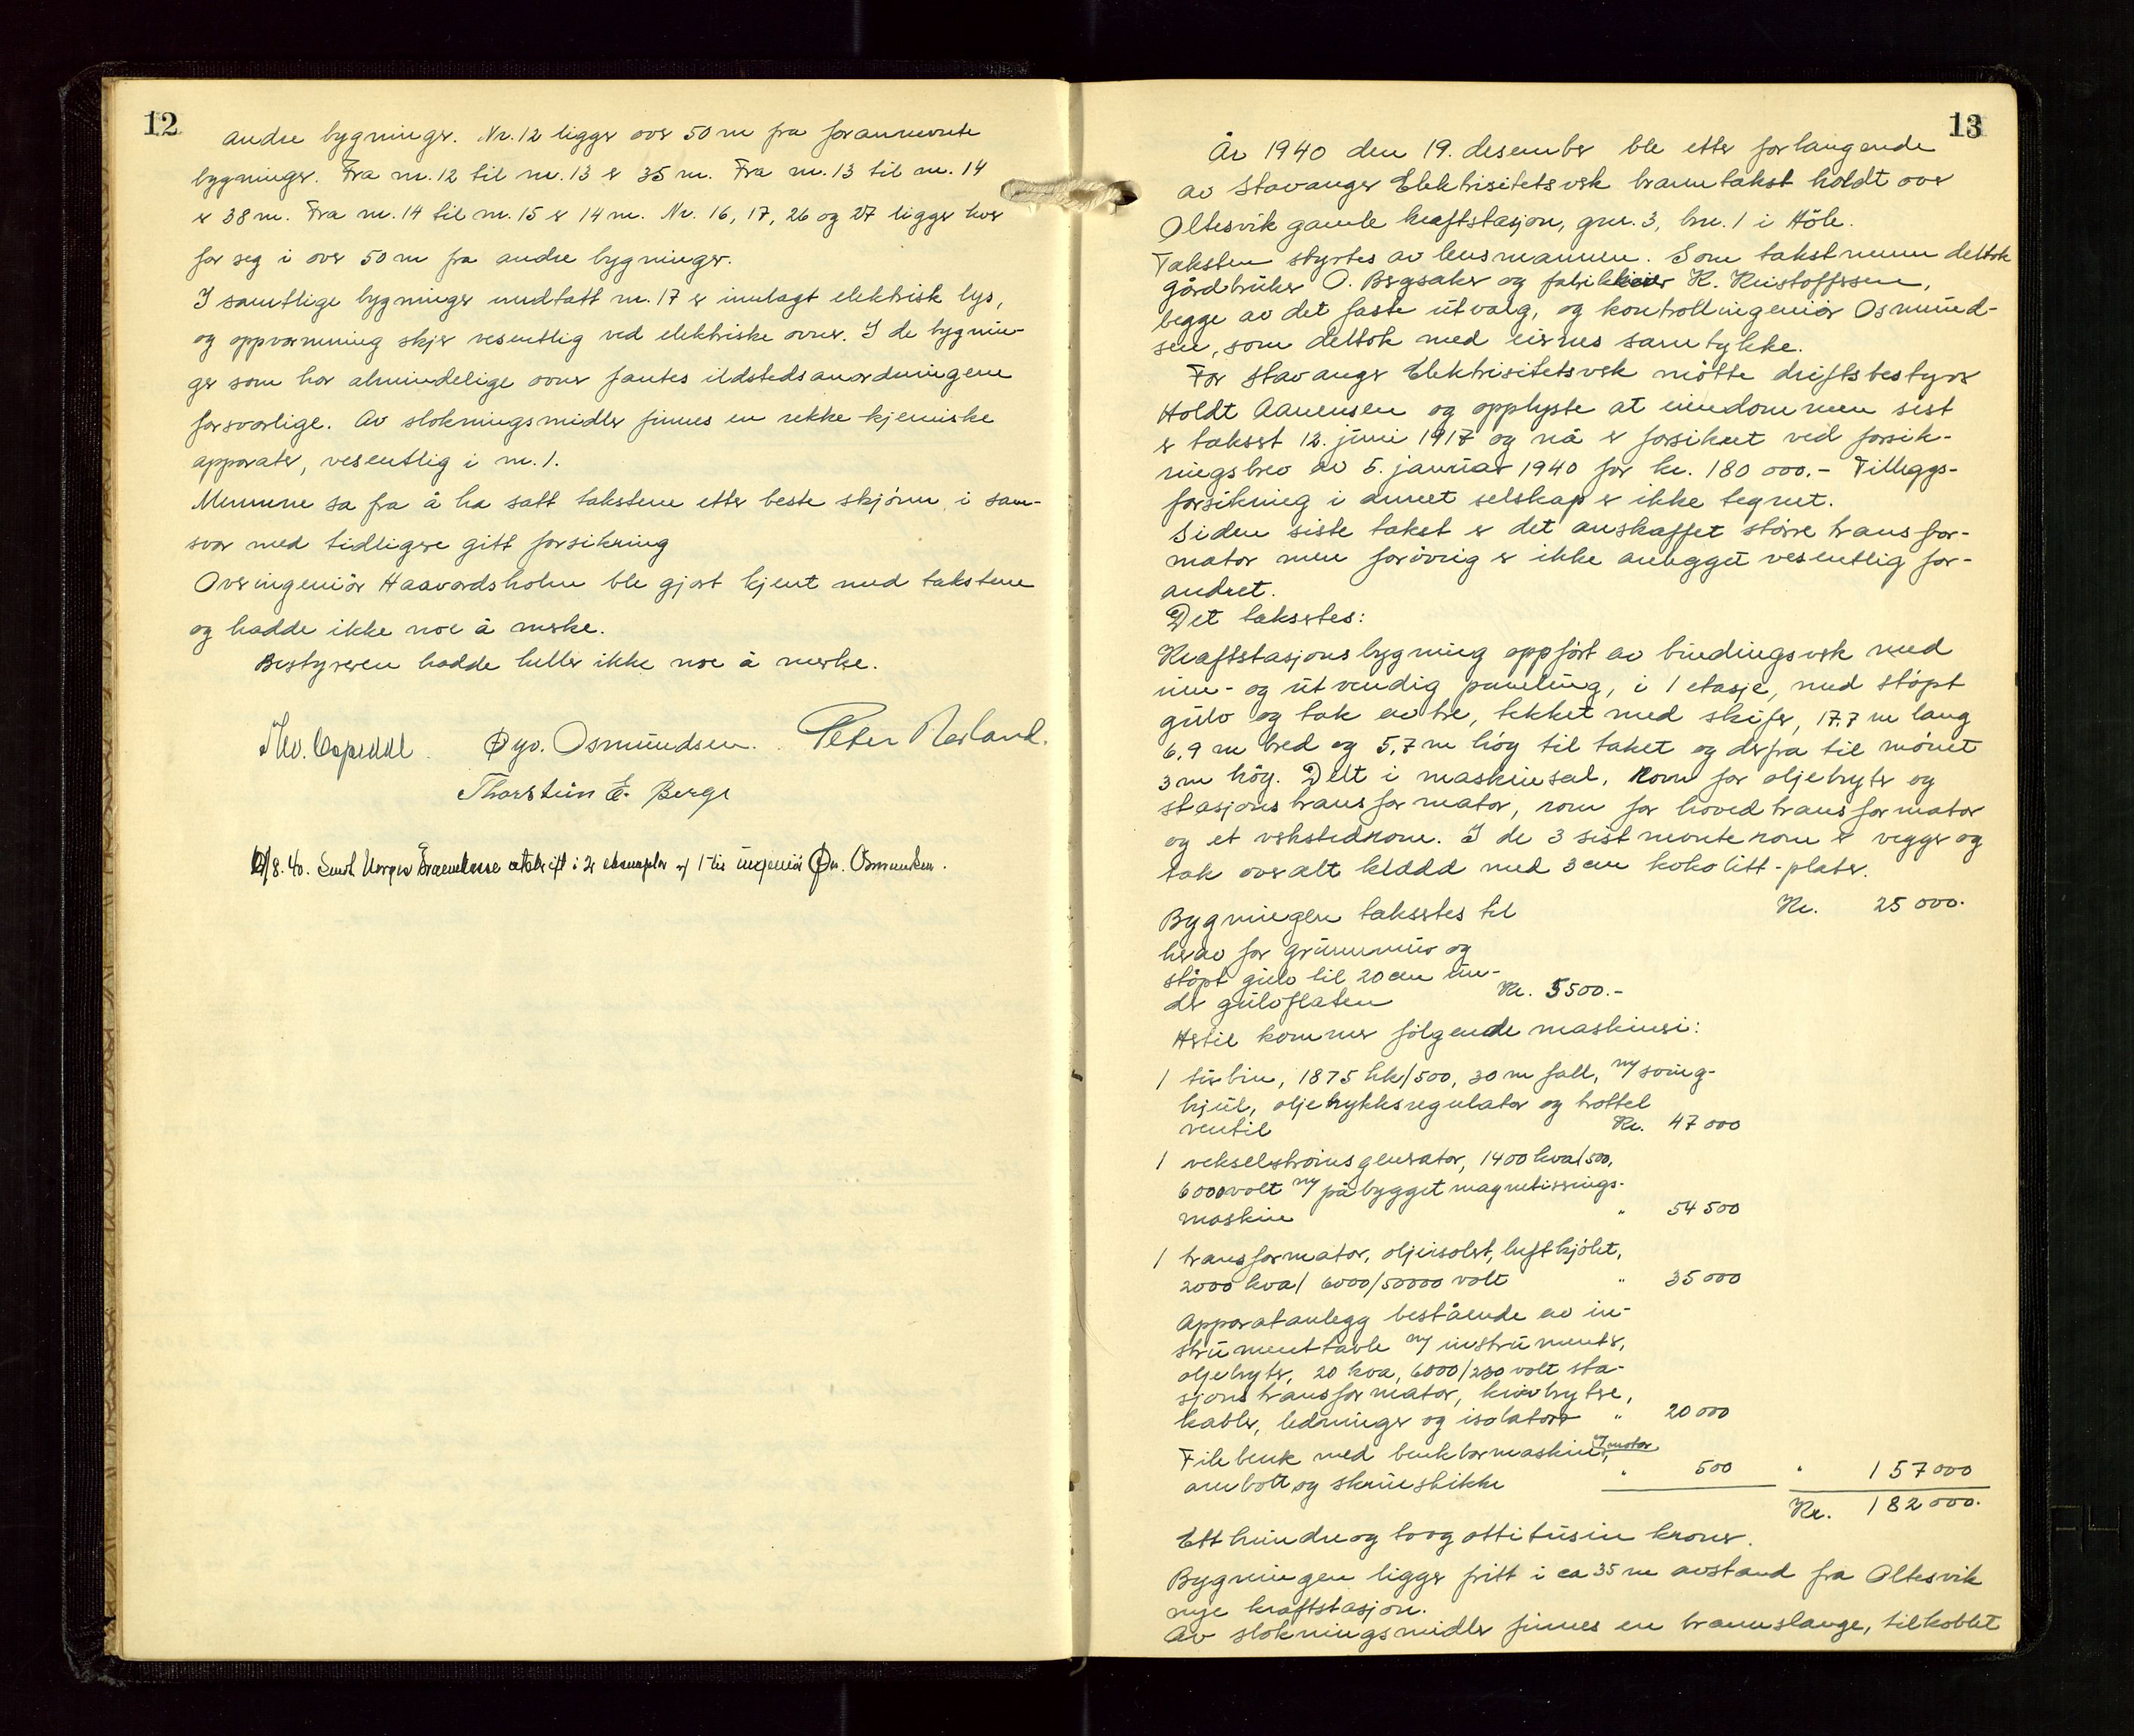 12
andre bygninger. Nr. 12 ligger over 50 m fra forannevnte
bygninger. Fra nr. 12 til nr. 13 er 35 m. Fra nr. 13 til nr. 14
er 38 m. Fra nr. 14 til nr. 15 er 14 m. Nr. 16, 17, 26 og 27 ligger hver
for seg i over 50 m fra andre bygninger.
I samtlige bygninger undtatt nr. 17 er innlagt elektrisk lys,
og oppvarmning skjer vesentlig ved elektriske ovner. I de bygnin-
ger som har almindelige ovner fantes ildstedsanordningene
forsvarlige. Av slokningsmidler finnes en rekke kjemiske
apparater, vesentlig i nr. 1.
Mennene sa fra å ha satt takstene etter beste skjønn, i sam-
svar med tidligere gitt forsikring
Overingeniør Haavardsholm ble gjort kjent med takstene
og hadde ikke noe å merke.
Bestyreren hadde heller ikke noe å merke.
Øyv. Osmundsen. Peter Nerland.
Thorstein E. Berge
/8.40. Sendt Norges Brannkasse utskrift i 2 eksemplar og 1 til ingeniør Øyv. Osmundsen.
13
År 1940 den 19. desember ble etter forlangende
av Stavanger Elektrisitetsverk branntakst holdt over
Oltesvik gamle kraftstasjon, gnr. 3, bnr. 1 i Höle.
Taksten styrtes av lensmannen. Som takstmenn deltok
gårdbruker O. Bergsaker og fabrikkeier K. Kristoffersen,
begge av det faste utvalg, og kontrollingeniør Osmund-
sen, som deltok med eiernes samtykke.
For Stavanger Elektrisitetsverk møtte driftsbestyrer
Holdt Aanensen og opplyste at eiendommen sist
er taksert 12. juni 1917 og nå er forsikret ved forsik-
ringsbrev av 5. januar 1940 for kr. 180 000.- Tilleggs-
forsikring i annet selskap er ikke tegnet.
Siden siste takst er det anskaffet større transfor-
mator men forøvrig er ikke anlegget vesentlig for-
andret.
Det takseres:
Kraftstasjonsbygning oppført av bindingsverk med
inn- og utvendig paneling, i 1 etasje, med støpt
gulv og tak av tre, tekket med skifer, 17,7 m lang
6,9 m bred og 5,7 m høg til taket og derfra til mønet
3 m høg. Delt i maskinsal, rom for oljebryter og
stasjonstransformator, rom for hovedtransformator
og et verkstedrom. I de 3 sistnevnte rom er vegger og
tak overalt kledd med 3 cm kokolitt-plater.
Bygningen takseres til Kr. 25 000.
herav for grunnmur og
støpt gulv til 20 cm un-
der gulvflaten Kr. 5500.-
Hertil kommer følgende maskineri:
1 turbin, 1875 hk/500, 30 m fall, m/ sving-
hjul, oljetrykksregulator og trottel
ventil Kr. 47 000
1 vekselstrømsgenerator, 1400 kva/500,
6000 volt m/ påbygget magnetiserings-
maskin " 54 500
1 transformator, oljeisolert, luftkjølet,
2000 kva/ 6000/50000 volt " 35 000
Apparatanlegg bestående av in-
strumenttavle m/ instrumenter,
oljebryter, 20 kva, 6000/230 volt sta-
sjonstransformator, knivbrytere,
kabler, ledninger og isolatorer " 20 000
Filebenk med benkbormaskin m/ motor,
ambolt og skruestikke " 500 " 157 000
Kr. 182 000.
Ett hundre og toog ottitusin kroner.
Bygningen ligger fritt i ca 35 m avstand fra Oltesvik
nye kraftstasjon.
Av slokningsmidler finnes en brannslange, tilkoblet